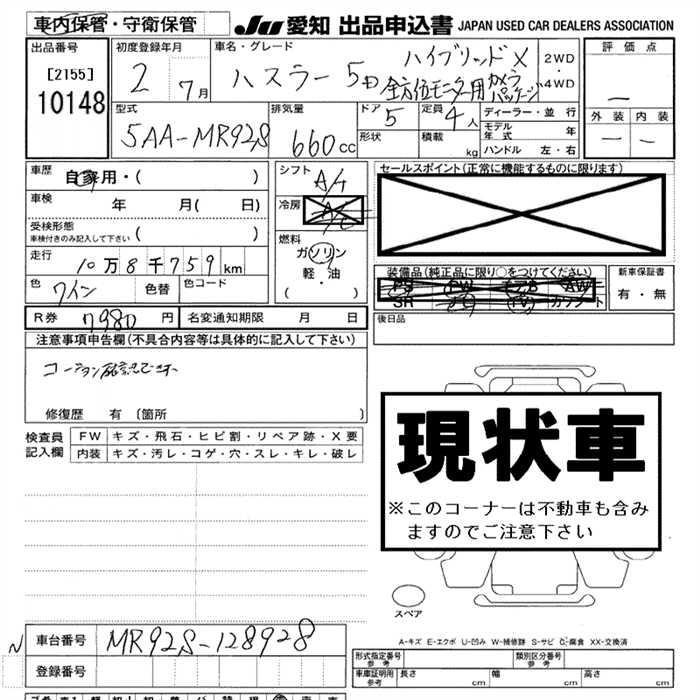 車内保管・守衛保管
JU 愛知 出品申込書 JAPAN USED CAR DEALERS ASSOCIATION
出品番号
[2155]
10148
初度登録年月
2 7月
車名・グレード
ハスラー 5D
ハイブリッドX
全方位モニター用カメラパッケージ
2WD
4WD
評価点
外装 内装
型式
5AA-MR92S
排気量
660cc
ドア
5
定員
4人
形状
積載
kg
ディーラー・並行
モデル年式 年
ハンドル 左・右
車歴
自家用・( )
車検
年 月( 日)
受検形態
車検付きのみ記入して下さい ( )
走行
10万8千759km
色
ワイン
色替
色コード
シフト
A/T
冷房
A/C
燃料
ガソリン
軽・油
( )
セールスポイント(正常に機能するものに限ります)
装備品(純正品に限り○をつけてください)
PS PW エアB AW
SR ナビ TV カワシート
新車保証書
有・無
後日品
R券 7980円
名変通知期限 月 日
注意事項申告欄(不具合内容等は具体的に記入して下さい)
修復歴 有 〔箇所
検査員
記入欄
FW キズ・飛石・ヒビ割・リペア跡・X要
内装 キズ・汚レ・コゲ・穴・スレ・キレ・破レ
現状車
※このコーナーは不動車も含み
ますのでご注意下さい
スペア
A-キズ E-エクボ U-凹み W-補修跡 S-サビ C-腐食 XX-交換済
N
車台番号 MR92S-128928
登録番号
形式指定番号
参考
類別区分番号
参考
車庫証明用
参考
長さ cm 幅 cm 高さ cm